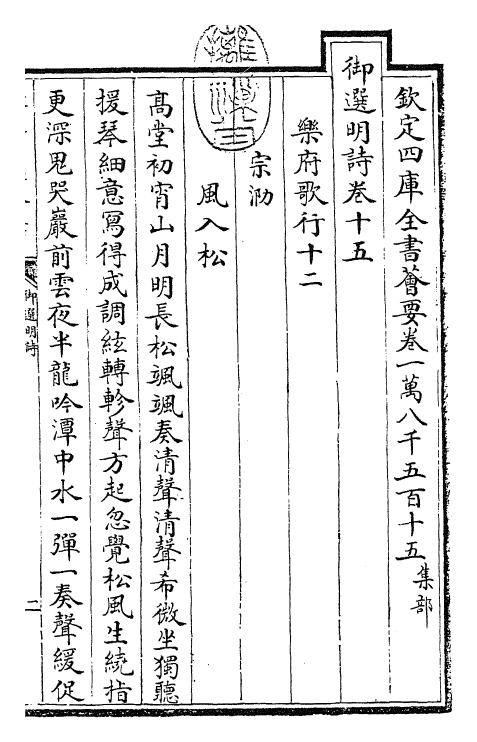 欽定四庫全書薈要卷一萬八千五百十五集部
御選明詩卷十五
樂府歌行十二
宗泐
風入松
高堂初宵山月明長松颯颯奏清聲清聲希微坐獨聽
援琴細意寫得成調絃轉軫聲方起忽覺松風生繞指
更深鬼哭巖前雲夜半龍吟潭中水一彈一奏聲緩促
御選明詩